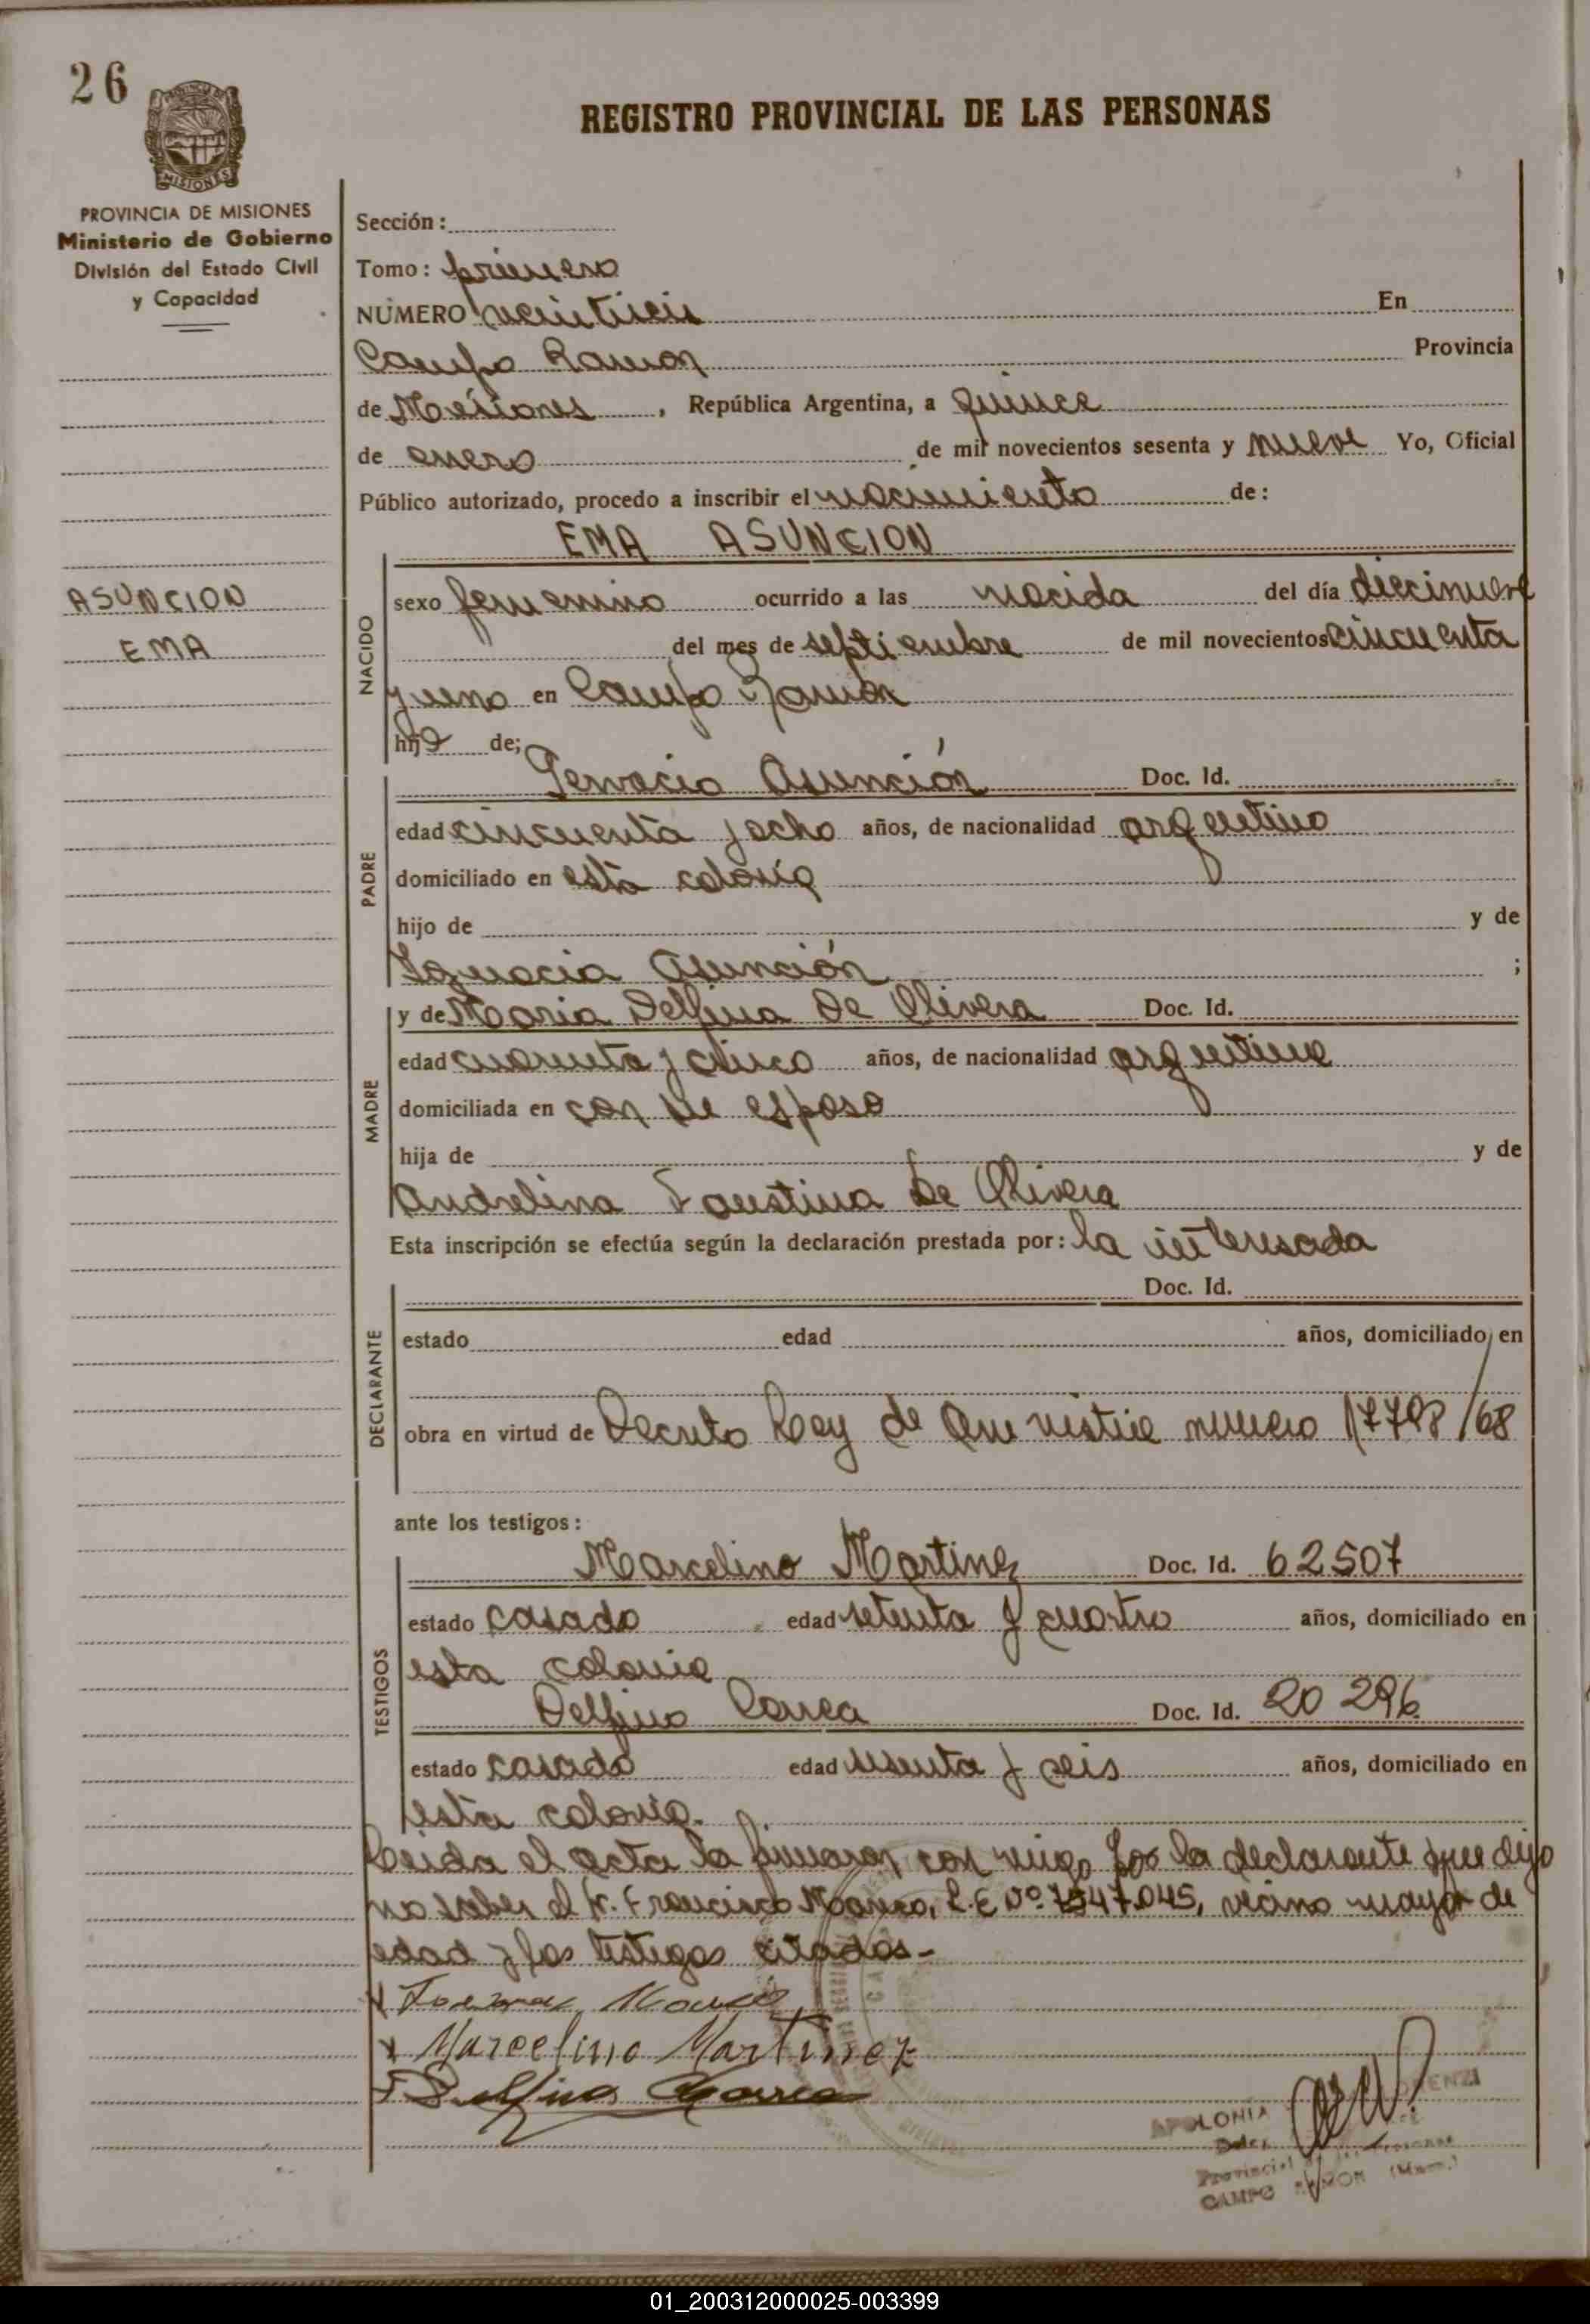 26
REGISTRO PROVINCIAL DE LAS PERSONAS
MISIONES
PROVINCIA DE MISIONES
Ministerio de Gobierno
División del Estado Civil
y Capacidad
ASUNCION
EMA
Sección:
Tomo: primero
NÚMERO veintiseis En
Campo Ramon Provincia
de Misiones, República Argentina, a quince
de enero de mil novecientos sesenta y nueve Yo, Oficial
Público autorizado, procedo a inscribir el nacimiento de:
EMA ASUNCION
NACIDO
sexo femenino ocurrido a las nacida del día diecinueve
del mes de septiembre de mil novecientos cincuenta
y uno en Campo Ramón
hija de;
PADRE
Gervacio Asunción Doc. Id.
edad cincuenta y ocho años, de nacionalidad argentino
domiciliado en esta colonia
hijo de y de
Ignacia Asunción ;
MADRE
y de Maria Delfina De Olivera Doc. Id.
edad cuarenta y cinco años, de nacionalidad argentina
domiciliada en con su esposo
hija de y de
Andrelina Faustina De Olivera
Esta inscripción se efectúa según la declaración prestada por: la interesada
DECLARANTE
Doc. Id.
estado edad años, domiciliado en
obra en virtud de Decreto Ley de Amnistia numero 17798/68
ante los testigos:
TESTIGOS
Marcelino Martinez Doc. Id. 62507
estado casado edad setenta y cuatro años, domiciliado en
esta colonia
Delfino Doc. Id. 20 296
estado casado edad sesenta y seis años, domiciliado en
esta colonia.
Leida el acta la firmaron conmigo por la declarante que dijo
no saber el Sr. Francisco L.E Nº 7547.045, vecino mayor de
edad y los testigos citados-
Marcelino Martinez
Delfino
APOLONIA
Provincial de las Personas
CAMPO RAMON (Mnes.)
01_200312000025-003399